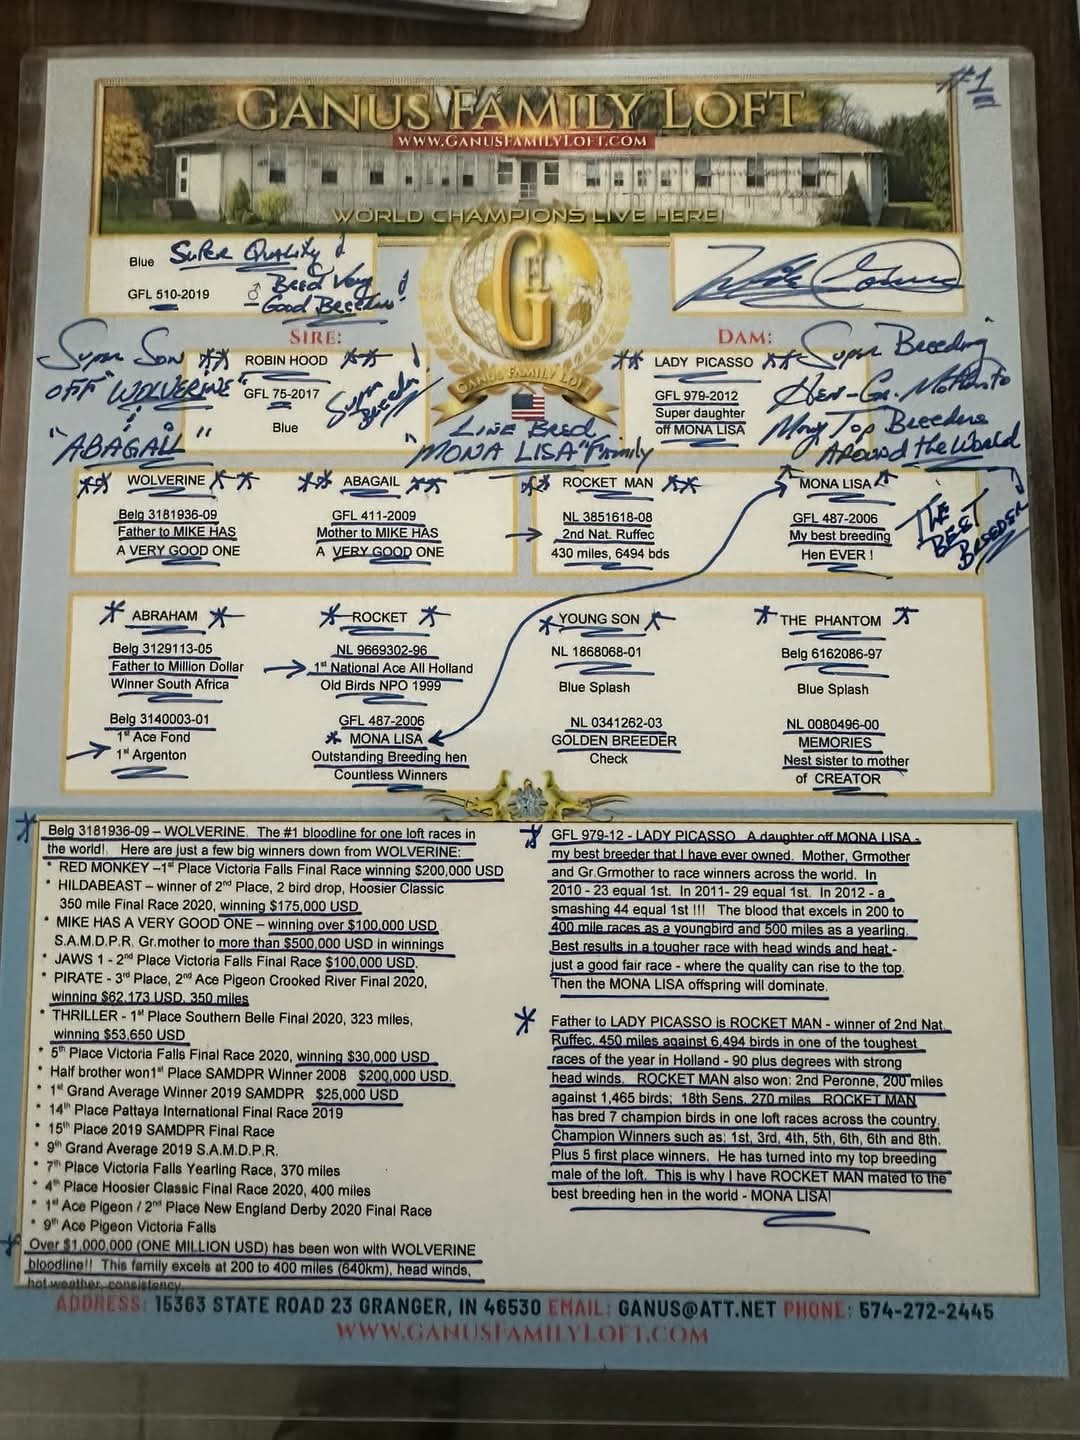 #1
GANUS FAMILY LOFT
WWW.GANUSFAMILYLOFT.COM
WORLD CHAMPIONS LIVE HERE!
Blue Super Quality!
GFL 510-2019 ♂ Bred Very
Good Breeders!
G
GANUS FAMILY LOFT
SIRE:
Super Son
OFF "WOLVERINE"
&
"ABAGAIL"
ROBIN HOOD
GFL 75-2017
Blue
Super
Breeder!
DAM:
LADY PICASSO
GFL 979-2012
Super daughter
off MONA LISA
"Super Breeding"
Hen - Gr. Mother to
Many Top Breeders
Around the World
Line Bred
"MONA LISA" Family
WOLVERINE
Belg 3181936-09
Father to MIKE HAS
A VERY GOOD ONE
ABAGAIL
GFL 411-2009
Mother to MIKE HAS
A VERY GOOD ONE
ROCKET MAN
NL 3851618-08
2nd Nat. Ruffec
430 miles, 6494 bds
MONA LISA
GFL 487-2006
My best breeding
Hen EVER !
THE
BEST
BREEDER
ABRAHAM
Belg 3129113-05
Father to Million Dollar
Winner South Africa
Belg 3140003-01
1st Ace Fond
1st Argenton
ROCKET
NL 9669302-96
1st National Ace All Holland
Old Birds NPO 1999
GFL 487-2006
MONA LISA
Outstanding Breeding hen
Countless Winners
YOUNG SON
NL 1868068-01
Blue Splash
NL 0341262-03
GOLDEN BREEDER
Check
THE PHANTOM
Belg 6162086-97
Blue Splash
NL 0080496-00
MEMORIES
Nest sister to mother
of CREATOR
Belg 3181936-09 – WOLVERINE. The #1 bloodline for one loft races in
the world!. Here are just a few big winners down from WOLVERINE:
* RED MONKEY –1st Place Victoria Falls Final Race winning $200,000 USD
* HILDABEAST – winner of 2nd Place, 2 bird drop, Hoosier Classic
350 mile Final Race 2020, winning $175,000 USD
* MIKE HAS A VERY GOOD ONE – winning over $100,000 USD
S.A.M.D.P.R. Gr.mother to more than $500,000 USD in winnings
* JAWS 1 - 2nd Place Victoria Falls Final Race $100,000 USD.
* PIRATE - 3rd Place, 2nd Ace Pigeon Crooked River Final 2020,
winning $62,173 USD, 350 miles
* THRILLER - 1st Place Southern Belle Final 2020, 323 miles,
winning $53,650 USD
* 5th Place Victoria Falls Final Race 2020, winning $30,000 USD
* Half brother won1st Place SAMDPR Winner 2008 $200,000 USD.
* 1st Grand Average Winner 2019 SAMDPR $25,000 USD
* 14th Place Pattaya International Final Race 2019
* 15th Place 2019 SAMDPR Final Race
* 9th Grand Average 2019 S.A.M.D.P.R.
* 7th Place Victoria Falls Yearling Race, 370 miles
* 4th Place Hoosier Classic Final Race 2020, 400 miles
* 1st Ace Pigeon / 2nd Place New England Derby 2020 Final Race
* 9th Ace Pigeon Victoria Falls
Over $1,000,000 (ONE MILLION USD) has been won with WOLVERINE
bloodline!! This family excels at 200 to 400 miles (640km), head winds,
hot weather, consistency.
GFL 979-12 - LADY PICASSO A daughter off MONA LISA -
my best breeder that I have ever owned. Mother, Grmother
and Gr.Grmother to race winners across the world. In
2010 - 23 equal 1st. In 2011- 29 equal 1st. In 2012 - a
smashing 44 equal 1st !!! The blood that excels in 200 to
400 mile races as a youngbird and 500 miles as a yearling.
Best results in a tougher race with head winds and heat -
just a good fair race - where the quality can rise to the top.
Then the MONA LISA offspring will dominate.
Father to LADY PICASSO is ROCKET MAN - winner of 2nd Nat.
Ruffec, 450 miles against 6,494 birds in one of the toughest
races of the year in Holland - 90 plus degrees with strong
head winds. ROCKET MAN also won: 2nd Peronne, 200 miles
against 1,465 birds; 18th Sens, 270 miles. ROCKET MAN
has bred 7 champion birds in one loft races across the country,
Champion Winners such as; 1st, 3rd, 4th, 5th, 6th, 6th and 8th.
Plus 5 first place winners. He has turned into my top breeding
male of the loft. This is why I have ROCKET MAN mated to the
best breeding hen in the world - MONA LISA!
ADDRESS: 15363 STATE ROAD 23 GRANGER, IN 46530 EMAIL: GANUS@ATT.NET PHONE: 574-272-2445
WWW.GANUSFAMILYLOFT.COM